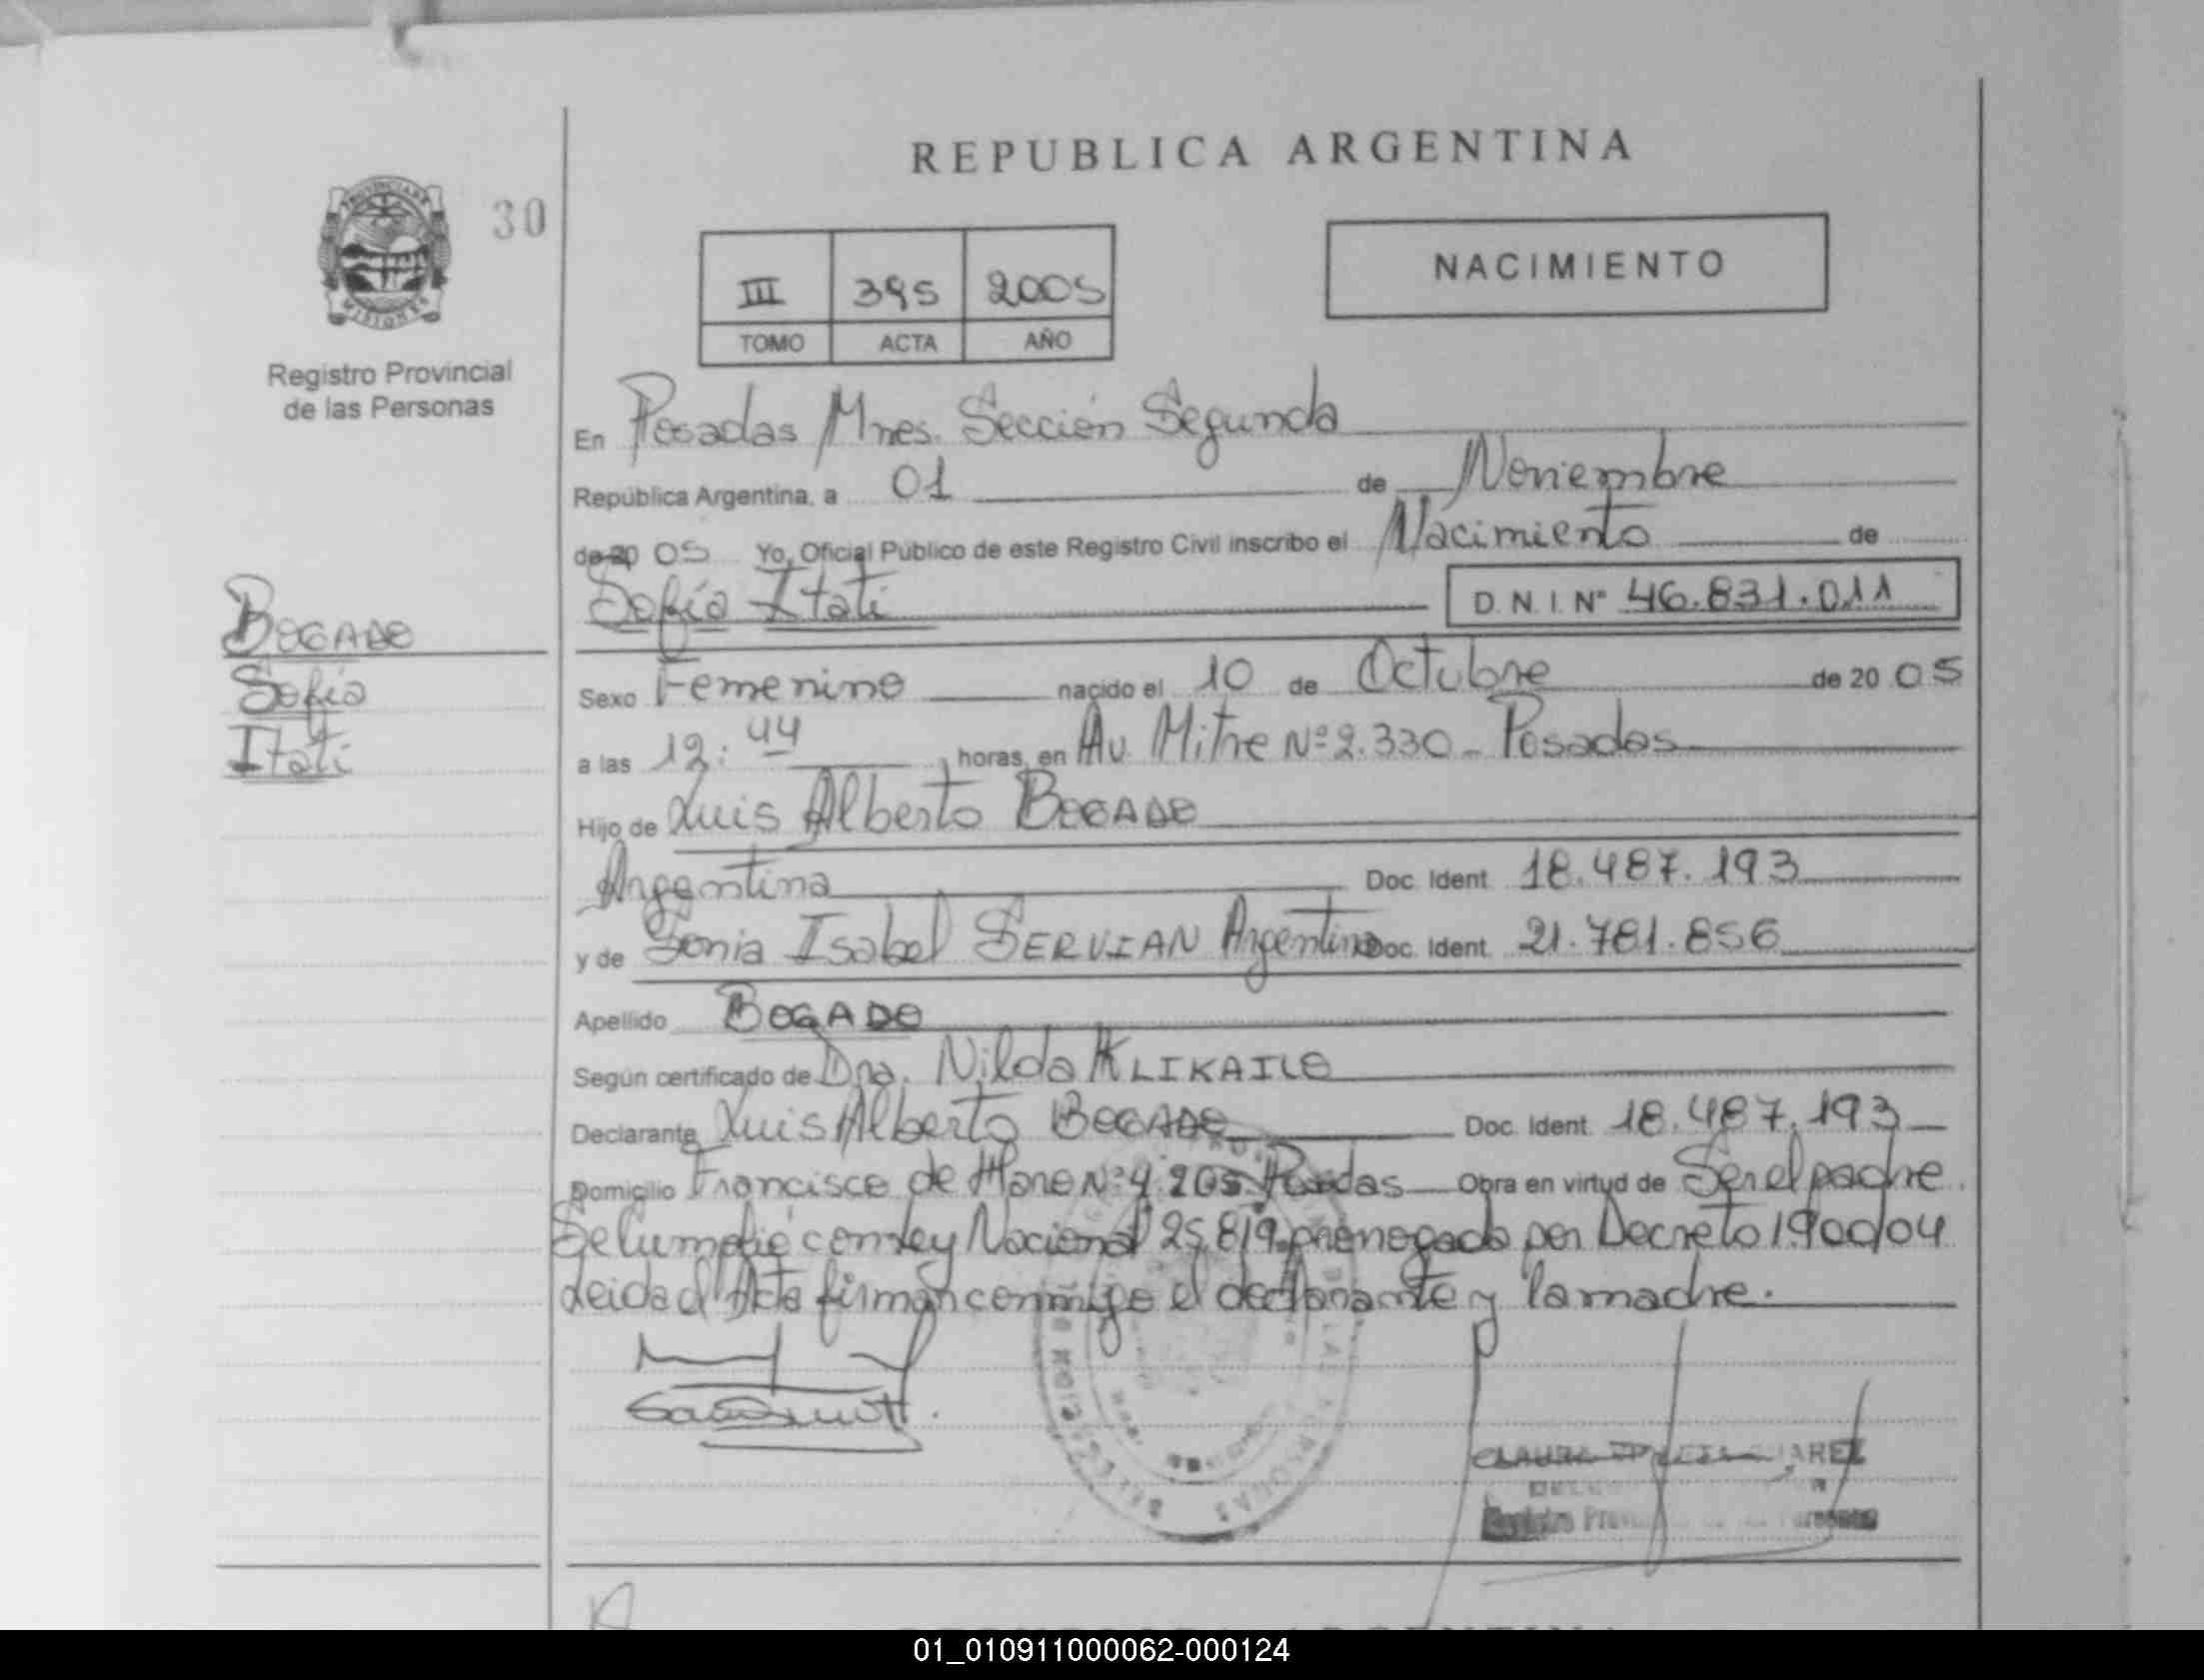 REPUBLICA ARGENTINA
30
NACIMIENTO
III 395 2005
TOMO ACTA AÑO
PROVINCIA DE
MISIONES
Registro Provincial
de las Personas
En Posadas Mnes. Sección Segunda
República Argentina, a 01 de Noviembre
de 20 05 Yo, Oficial Público de este Registro Civil inscribo el Nacimiento de
Sofía Itatí D.N.I. Nº 46.831.011
BOGADO
Sofía
Itatí
Sexo Femenino nacido el 10 de Octubre de 20 05
a las 12:44 horas, en Av. Mitre Nº 2.330 - Posadas
Hijo de Luis Alberto BOGADO
Argentina Doc. Ident. 18.487.193
y de Sonia Isabel SERVIAN Argentina Doc. Ident. 21.781.856
Apellido BOGADO
Según certificado de Dra. Nilda KLIKAILO
Declarante Luis Alberto BOGADO Doc. Ident. 18.487.193
Domicilio Francisco de Haro Nº 4.205 Posadas Obra en virtud de Ser el padre.
Se cumplió con Ley Nacional 25.819 prorrogado por Decreto 1900/04
Leida el Acta firman conmigo el declarante y la madre.
Registro
01_010911000062-000124